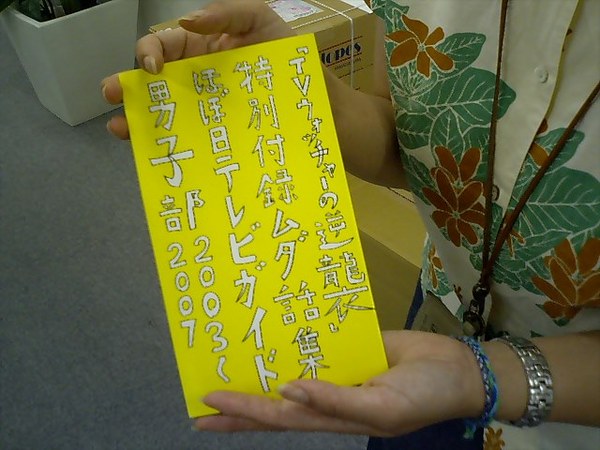 『TVウォッチャーの逆襲』
特別付録ムダ話集
ほぼ日テレビガイド
男子部2003〜
2007